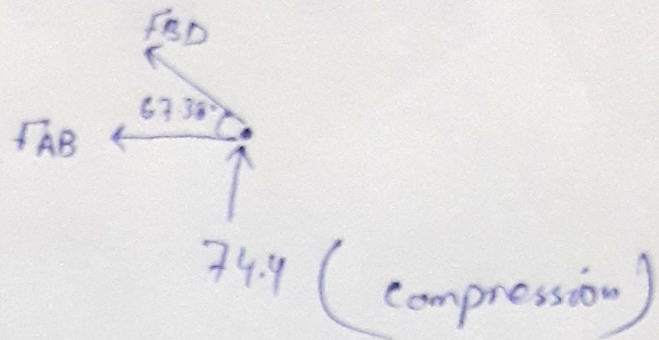 FBD
67.38°
FAB
74.4 (compressión)